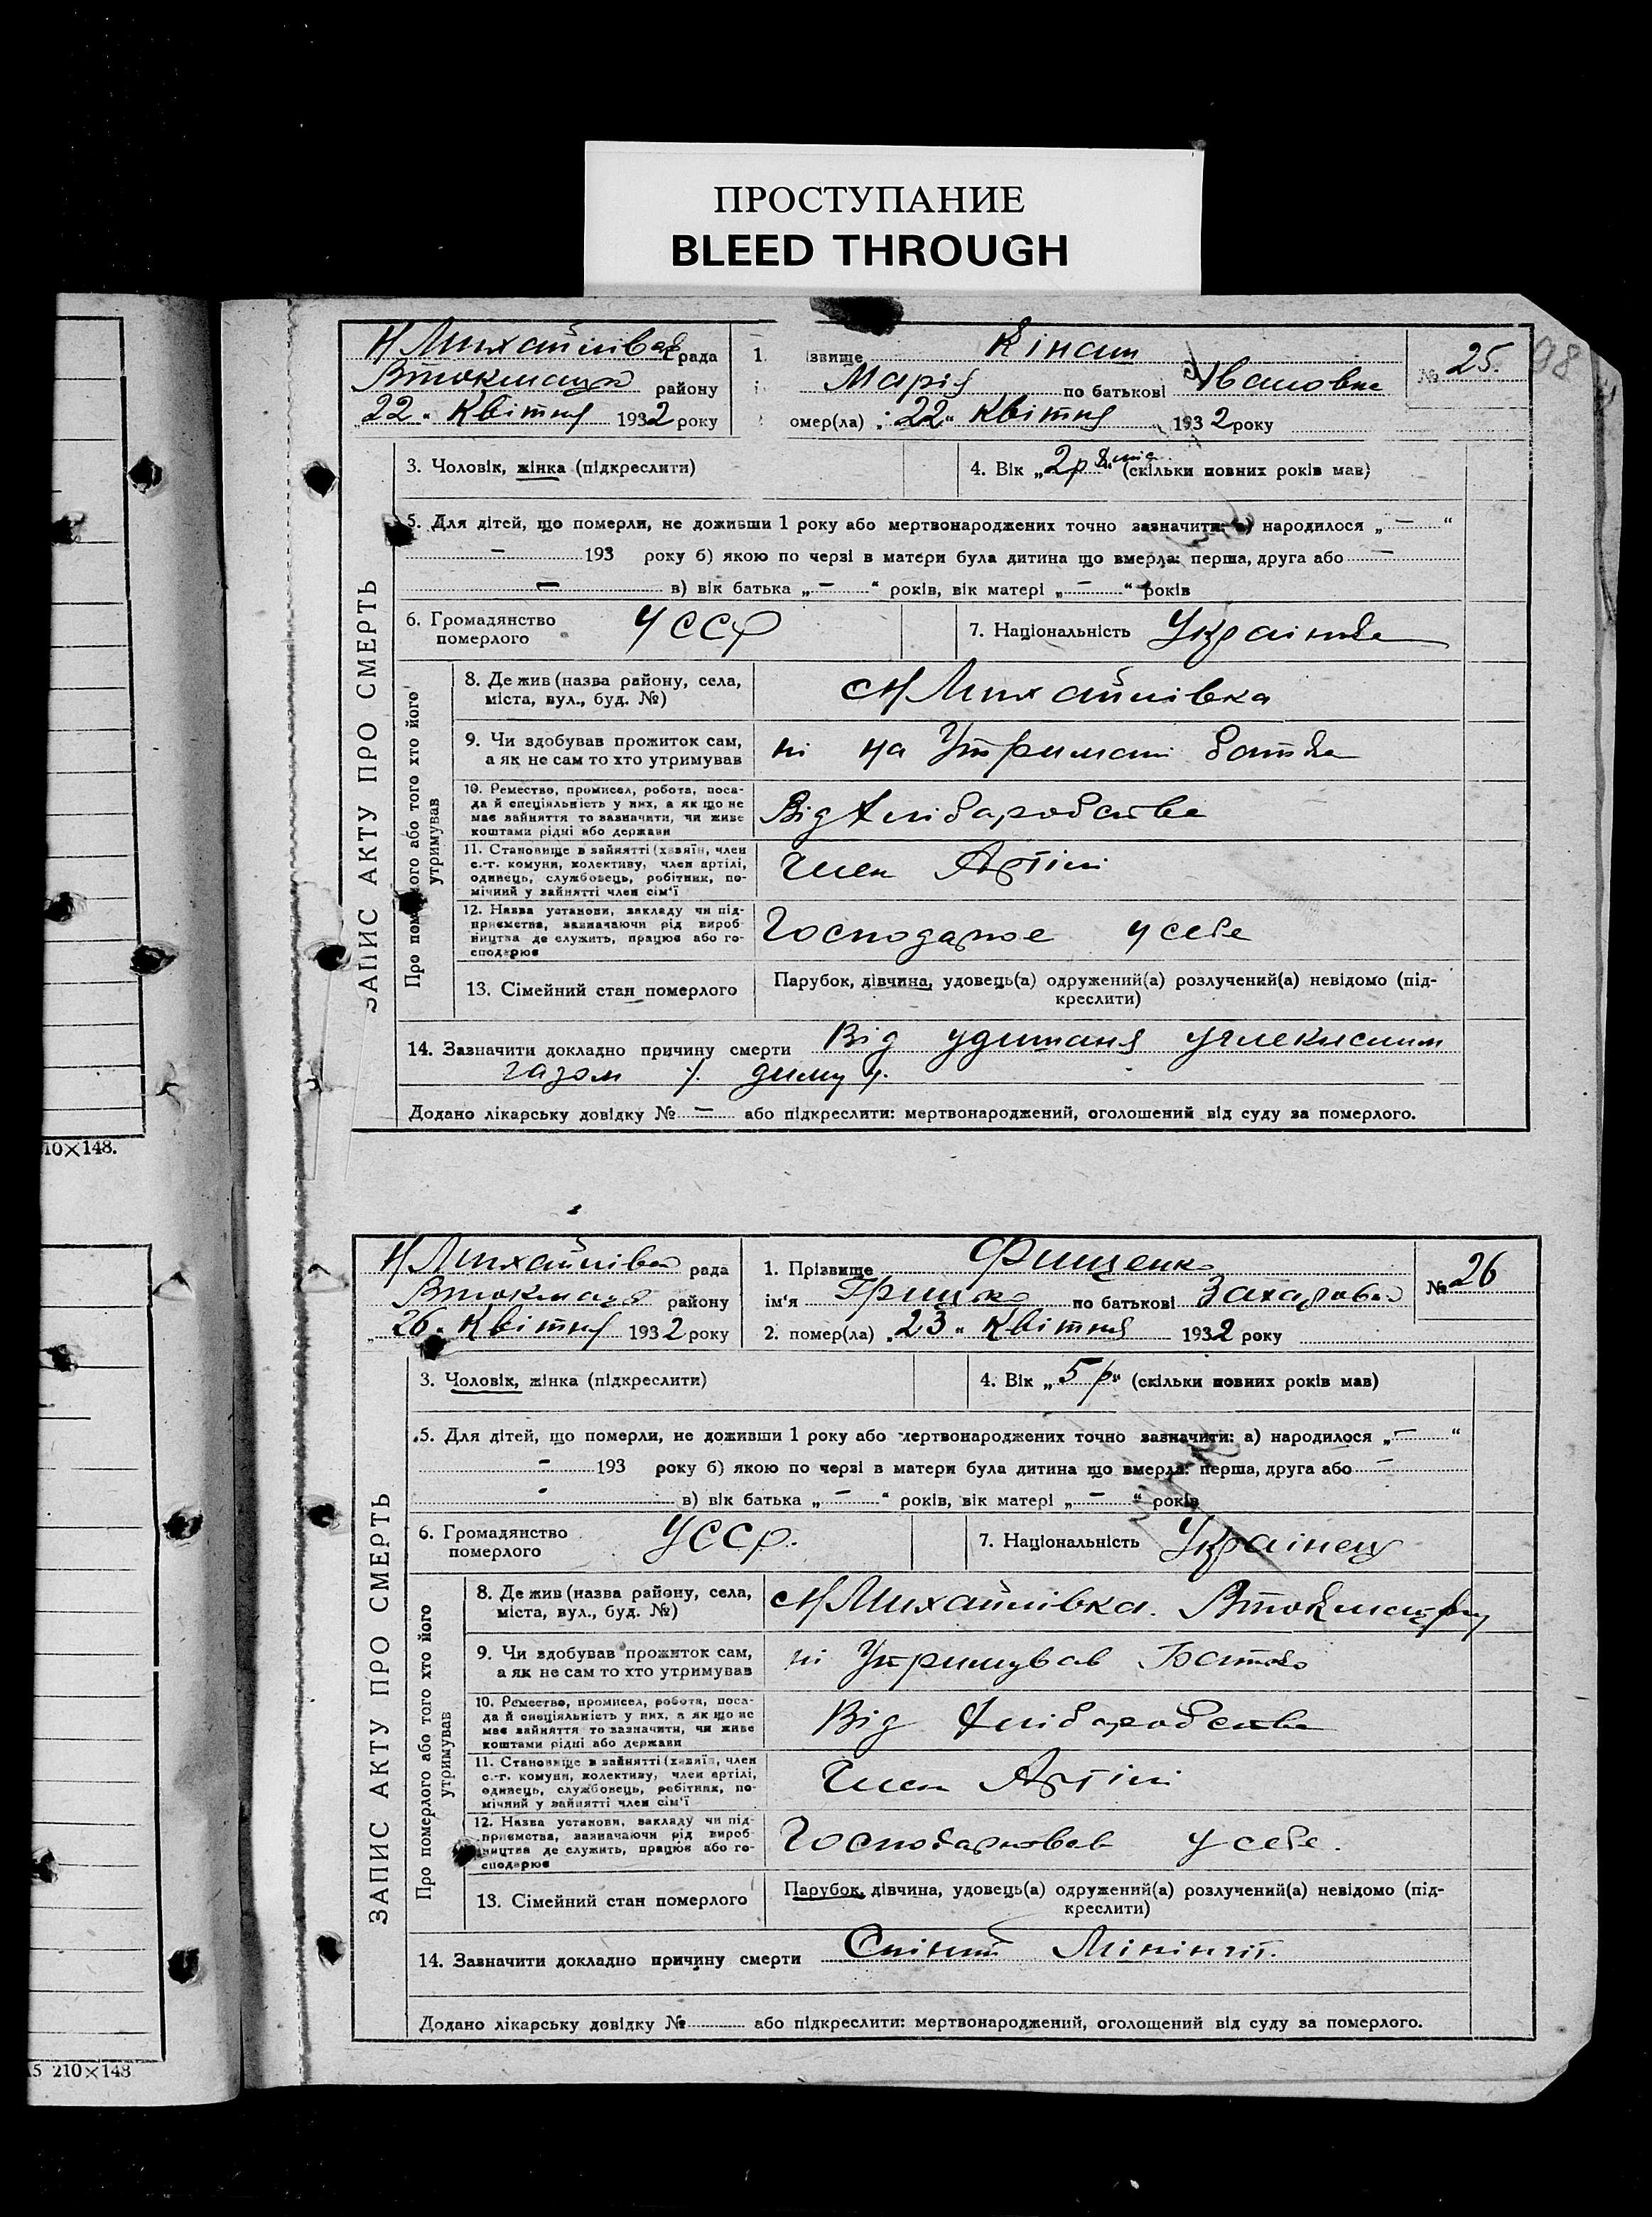 ПРОСТУПАНИЕ
BLEED THROUGH
98
Н Михайлівсь рада
Втокмацьк району
„22“ Квітня 1932 року
1. ізвище Кінаш
Марія по батькові Івановна
омер(ла) „22“ Квітня 1932 року
№ 25.
3. Чоловік, жінка (підкреслити)
4. Вік „2р 8 міс“ (скільки повних років мав)
5. Для дітей, що померли, не доживши 1 року або мертвонароджених точно зазначити: а) народилося „—“
— 193 року б) якою по черзі в матери була дитина що вмерла: перша, друга або —
— в) вік батька „—“ років, вік матері „—“ років
6. Громадянство померлого УССР
7. Національність Українка
ЗАПИС АКТУ ПРО СМЕРТЬ
Про померлого або того хто його утримував
8. Де жив (назва району, села,
міста, вул., буд. №)
с Н Михайлівка
9. Чи здобував прожиток сам,
а як не сам то хто утримував
ні на Утримані батька
10. Ремество, промисел, робота, поса-
да й спеціяльність у них, а як що не
має зайняття то зазначити, чи живе
коштами рідні або держави
Від Хлібаробства
11. Становище в зайнятті (хазяїн, член
с.-г. комуни, колективу, член артілі,
одинець, службовець, робітник, по-
мічний у зайнятті член сім'ї
Член Артіли
12. Назва установи, закладу чи під-
приємства, зазначаючи рід вироб-
ництва де служить, працює або го-
сподарює
Господарює у себе
13. Сімейний стан померлого
Парубок, дівчина, удовець(а) одружений(а) розлучений(а) невідомо (під-
креслити)
14. Зазначити докладно причину смерти Від удушаня углекислим
газом /. диму /.
Додано лікарську довідку № — або підкреслити: мертвонароджений, оголошений від суду за померлого.
10×148.
Н Михайлівсь рада
Втокмацьк району
„26“ Квітня 1932 року
1. Прізвище Фищенко
ім'я Грицько по батькові Захарович
2. помер(ла) „23“ Квітня 1932 року
№ 26
3. Чоловік, жінка (підкреслити)
4. Вік „5 р“ (скільки повних років мав)
5. Для дітей, що померли, не доживши 1 року або мертвонароджених точно зазначити: а) народилося „—“
— 193 року б) якою по черзі в матери була дитина що вмерла: перша, друга або —
в) вік батька „—“ років, вік матері „—“ років
6. Громадянство померлого УССР.
7. Національність Українец
ЗАПИС АКТУ ПРО СМЕРТЬ
Про померлого або того хто його утримував
8. Де жив (назва району, села,
міста, вул., буд. №)
с Н Михайлівка. Втокмац рну
9. Чи здобував прожиток сам,
а як не сам то хто утримував
ні Утримував Батько
10. Ремество, промисел, робота, поса-
да й спеціяльність у них, а як що не
має зайняття то зазначити, чи живе
коштами рідні або держави
Від Хлібаробства
11. Становище в зайнятті (хазяїн, член
с.-г. комуни, колективу, член артілі,
одинець, службовець, робітник, по-
мічний у зайнятті член сім'ї
Член Артіли
12. Назва установи, закладу чи під-
приємства, зазначаючи рід вироб-
ництва де служить, працює або го-
сподарює
Господарював у себе.
13. Сімейний стан померлого
Парубок, дівчина, удовець(а) одружений(а) розлучений(а) невідомо (під-
креслити)
14. Зазначити докладно причину смерти
Додано лікарську довідку № або підкреслити: мертвонароджений, оголошений від суду за померлого.
5 210×148